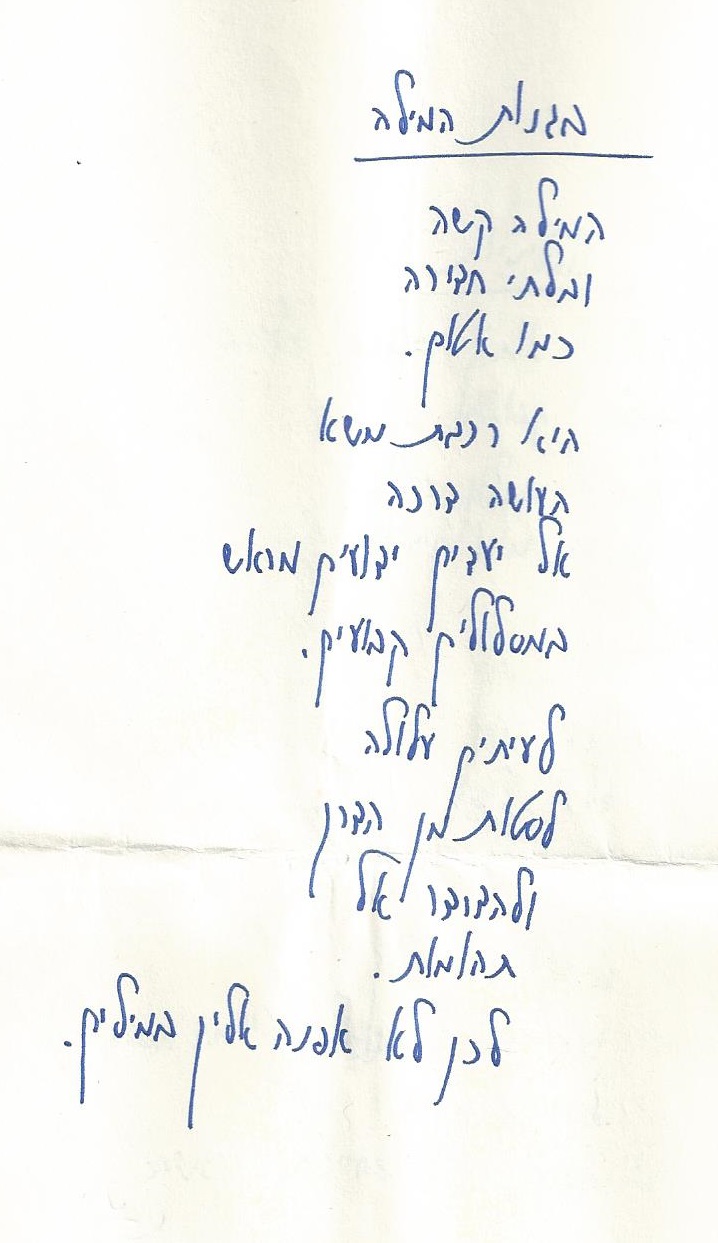 בגנות המילה
המילה קשה
ובלתי חדירה
כמו אטום.
היא רכבת משא
העושה דרכה
אל יעדים ידועים מראש
במסלולים קבועים.
לעיתים עלולה
לסטות מן הדרך
ולהידרדר אל
תהומות.
לכן לא אפנה אליך במילים.